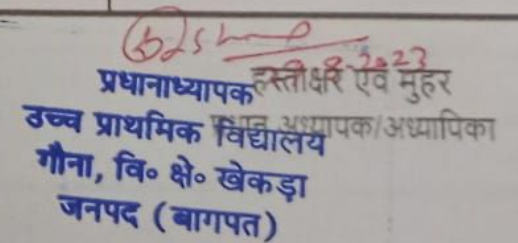 8-2023
हस्ताक्षर एवं मुहर
प्रधानाध्यापक
अध्यापक/अध्यापिका
उच्च प्राथमिक विद्यालय
गौना, वि० क्षे० खेकड़ा
जनपद (बागपत)